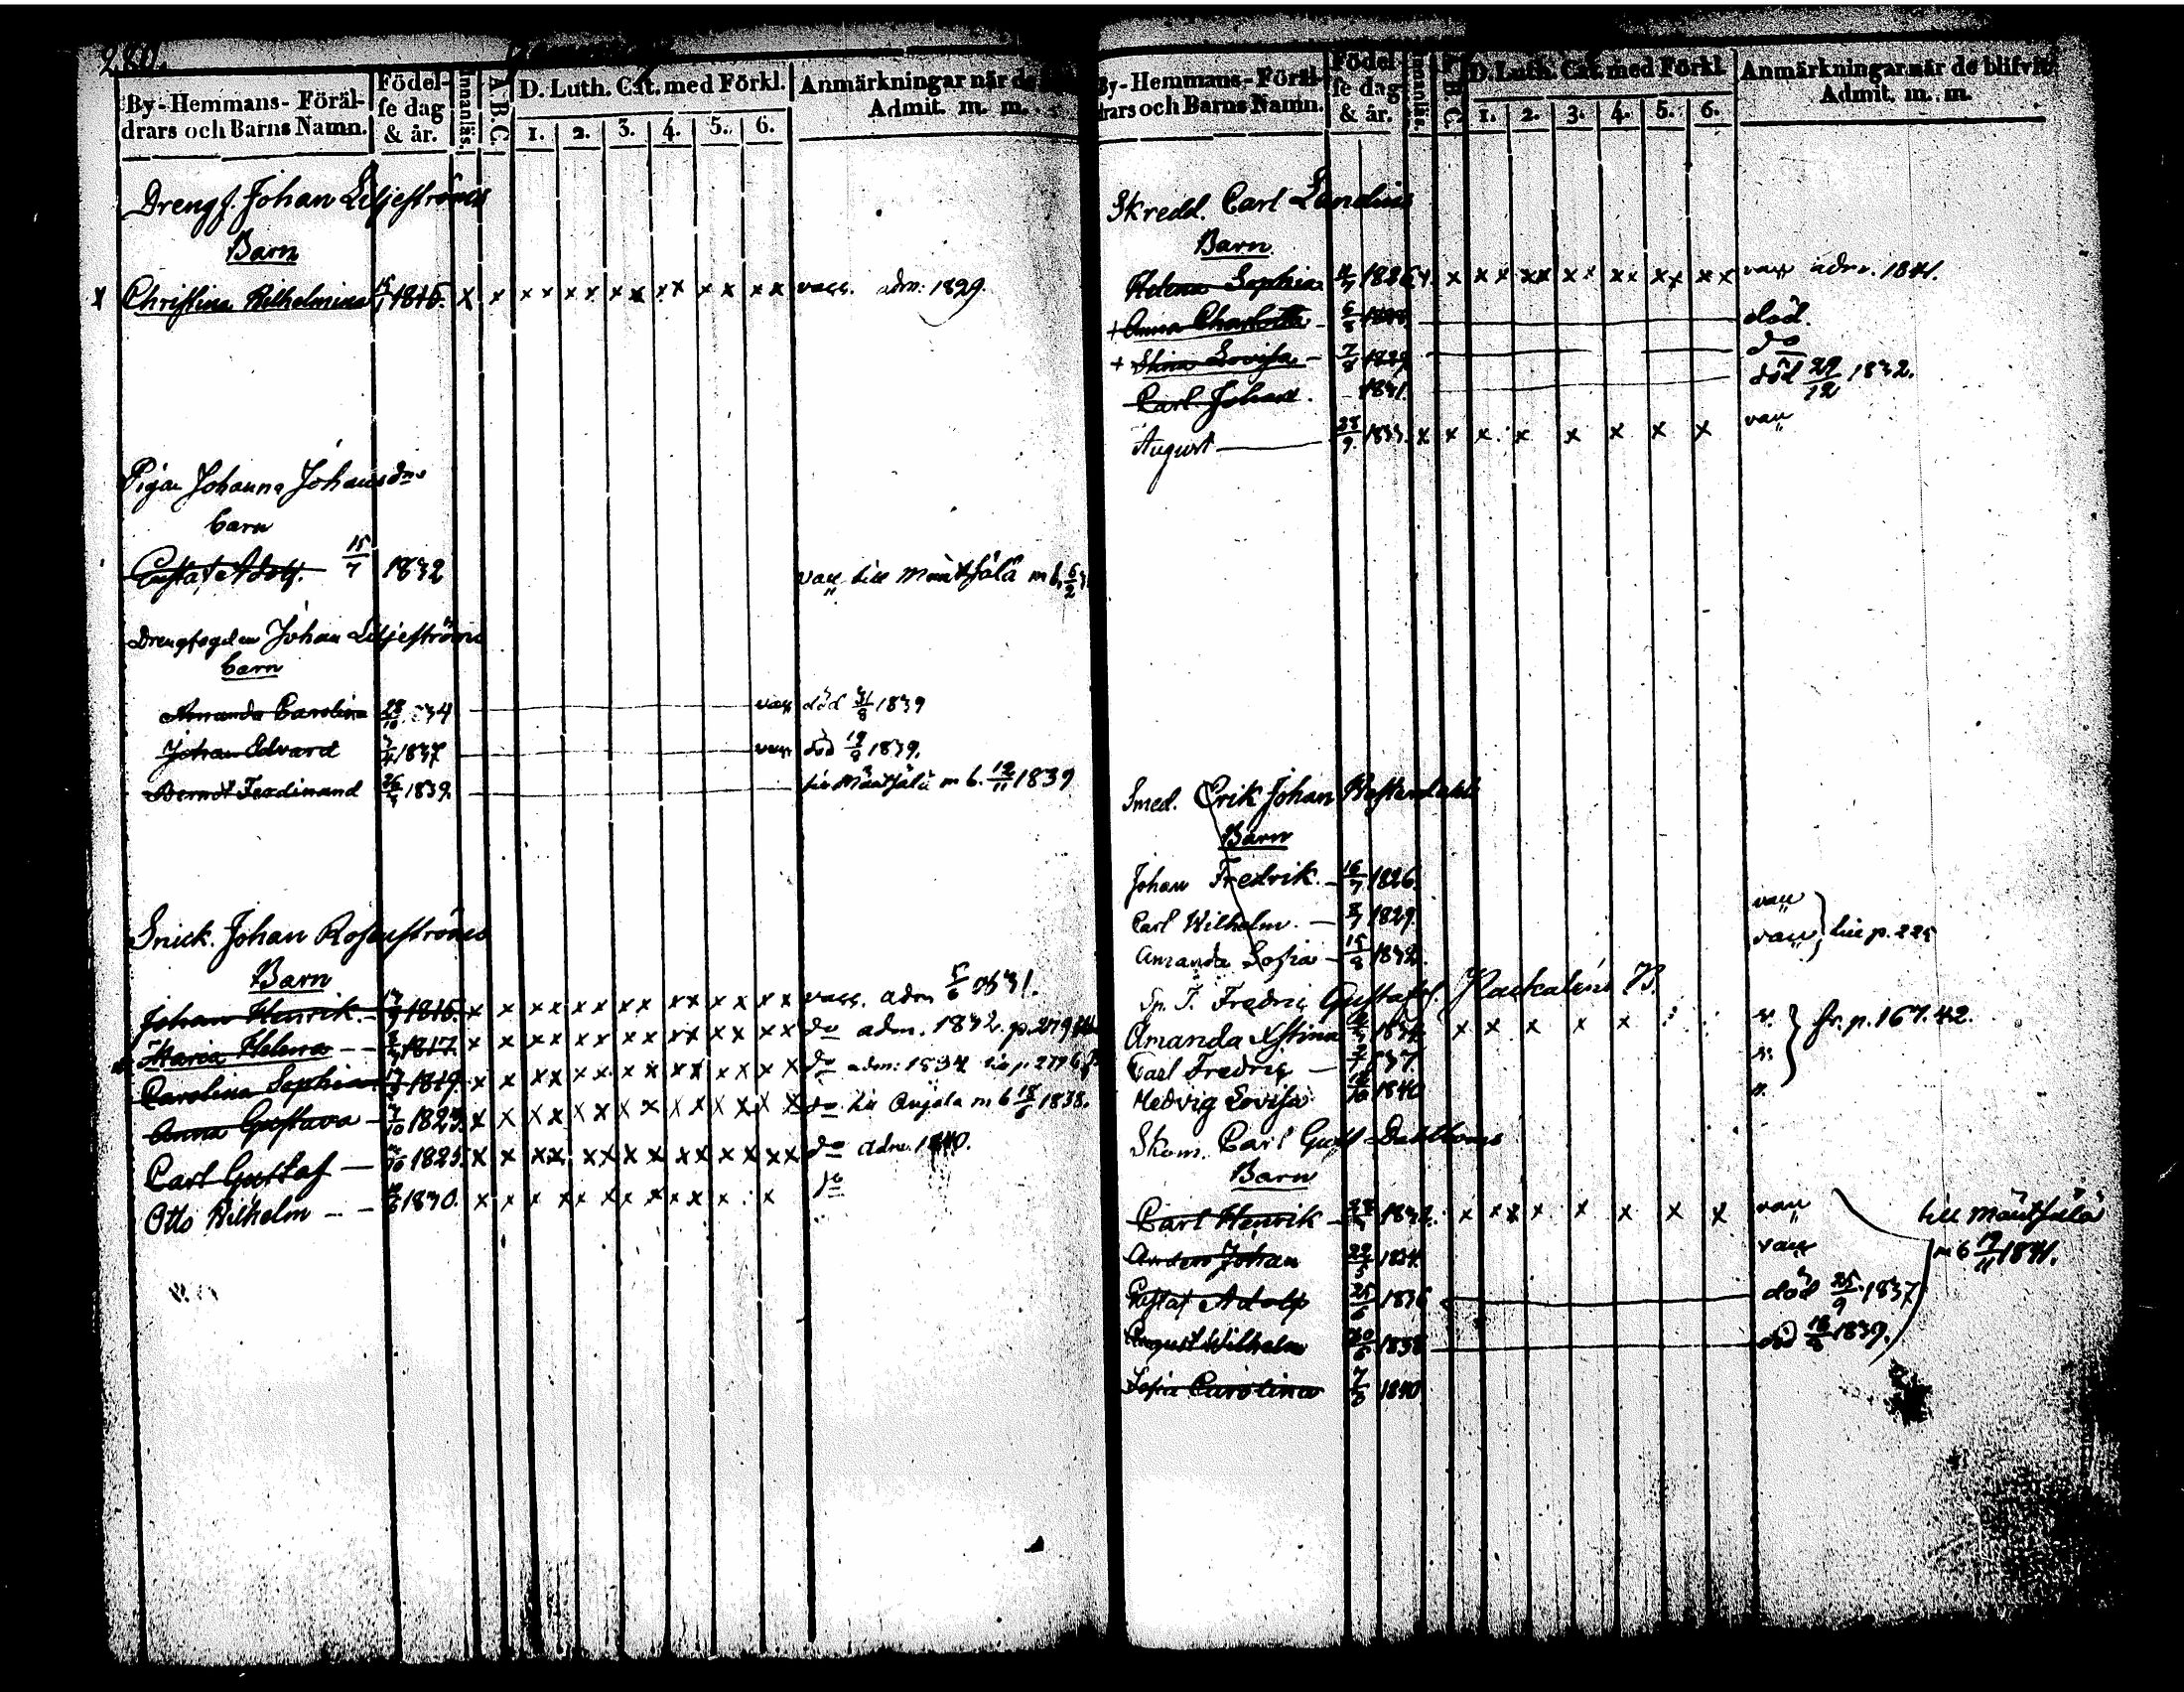 280.
By-Hemmans-Föräl-
drars och Barns Namn.
Födel-
se dag
& år.
Innanläs.
A B C.
D. Luth. Cat. med Förkl.
1. 2. 3. 4. 5. 6.
Anmärkningar när de
Admit. m. m.
Drengf. Johan Liljeströms
Barn
x Christina Wilhelmina 1815. x x x x x x x x x x x x x x vacc. adm. 1829.
Pigan Johanna Johansdrs
barn
Gustaf Adolf. 15/7 1832 vacc. till Mäntsälä m b. 6/2
Drengfogden Johan Liljeströms
barn
Amanda Carolina 28/10 834 vacc död 31/8 1839
Johan Edvard 1837 vacc död 19/8 1839.
Berndt Ferdinand 26/4 1839. till Mäntsälä m b. 12/11 1839
Snick. Johan Rosenströms
Barn
Johan Henrik. 1815. x x x x x x x x x x x x x x vacc. adm 5/6 1831.
Maria Helena 1817. x x x x x x x x x x x x x x do adm. 1832. p. 279
Carolina Sophia 1819. x x x x x x x x x x x x x x do adm: 1834 p. 279
Anna Gustava 1823. x x x x x x x x x x x x x x do till Anjala m b 18/6 1838.
Carl Gustaf 1825. x x x x x x x x x x x x x x do adm. 1840.
Otto Wilhelm 1830. x x x x x x x x x x x x do
By-Hemmans-Föräl-
drars och Barns Namn.
Födel-
se dag
& år.
Innanläs.
A B C.
D. Luth. Cat. med Förkl.
1. 2. 3. 4. 5. 6.
Anmärkningar när de blifvit
Admit. m. m.
Skredd. Carl Landins
Barn
Helena Sophia 1826 x x x x x x x x x x x x x vacc adm. 1841.
+ Anna Charlotta 6/8 död.
+ Stina Lovisa 7/8 1829 do
Carl Johan. 1831. död 29/12 1832.
August 28/9 1833. x x x x x x x x vacc
Smed. Erik Johan Westerdahls
Barn
Johan Fredrik. 16/7 1826.
Carl Wilhelm. 1829. vacc
Amanda Sofia 15/8 1832. vacc } till p. 225
Sp. T. Fredric Gustafs. B.
Amanda Xstina 1834 x x x x x v. } fr. p. 167. 42.
Carl Fredric 837. v.
Hedvig Lovisa 1840 v.
Skom. Carl Gust Dahlboms
Barn
Carl Henrik 1832. x x x x x x x x vacc till Mäntsälä
Anders Johan 22/5 1834. vacc m b 19/11 1841.
Gustaf Adolf 25/6 1836 död 25/9 1837
August Wilhelm 20/6 1838 död 18/8 1839.
Sofia Carolina 1840